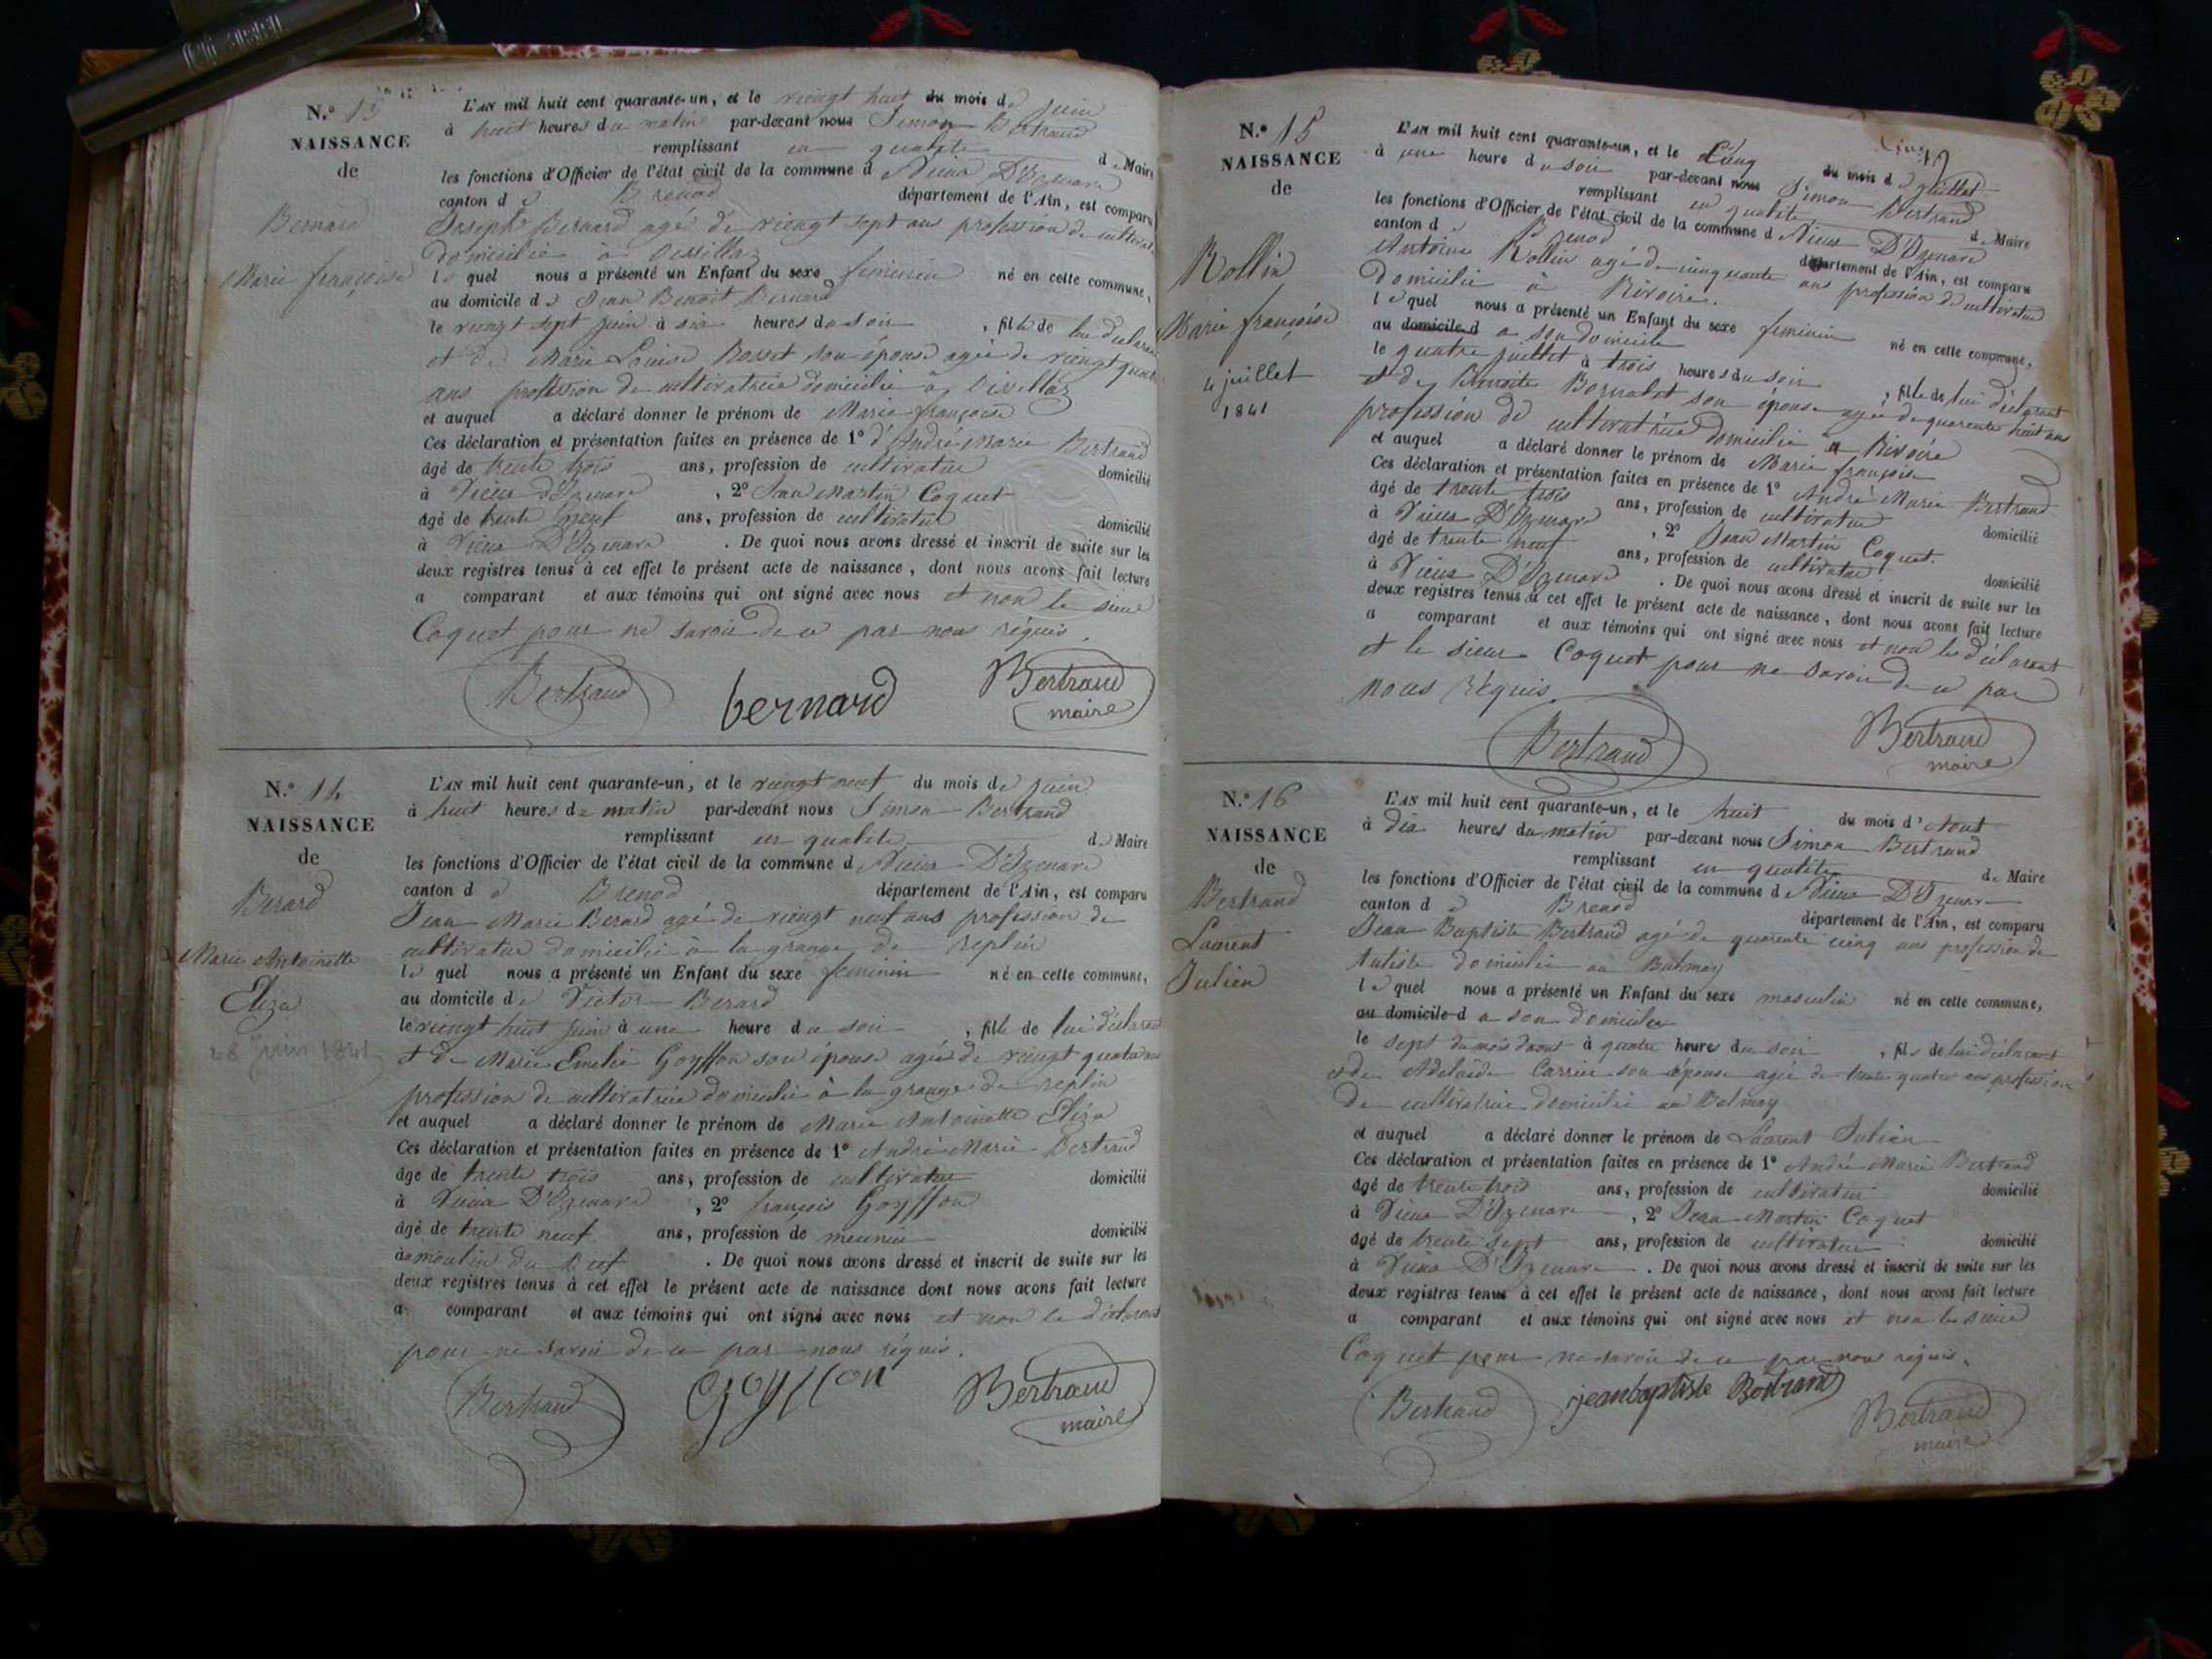 N.º 13
NAISSANCE
de
Bernard
Marie françoise
L'AN mil huit cent quarante-un, et le vingt huit du mois de juin
à huit heures du matin par-devant nous Simon Bertrand
remplissant en qualité de Maire
les fonctions d'Officier de l'état civil de la commune d Vieux D'Izenave
canton d e Brenod département de l'Ain, est comparu
Joseph Bernard agé de vingt sept ans profession de cultivat
domicilié à
le quel nous a présenté un Enfant du sexe feminin né en cette commune,
au domicile de Jean Benoit Bernard
le vingt sept juin à six heures du soir , fille de lui déclarant
et de Marie Louise Bosset son épouse agée de vingt quatre
ans profession de cultivatrice domicilié à
et auquel a déclaré donner le prénom de Marie françoise
Ces déclaration et présentation faites en présence de 1º d'André Marie Bertrand
âgé de trente trois ans, profession de cultivateur domicilié
à Vieux d'Izenave , 2º Jean Martin Coquet
âgé de trente neuf ans, profession de cultivateur domicilié
à Vieux D'Izenave . De quoi nous avons dressé et inscrit de suite sur les
deux registres tenus à cet effet le présent acte de naissance, dont nous avons fait lecture
a comparant et aux témoins qui ont signé avec nous et non le sieur
Coquet pour ne savoir de ce par nous réquis.
Bertrand bernard Bertrand
maire
N.º 14
NAISSANCE
de
Berard
Marie Antoinette
Eliza
28 juin 1841
L'AN mil huit cent quarante-un, et le vingt neuf du mois de juin
à huit heures du matin par-devant nous Simon Bertrand
remplissant en qualité de Maire
les fonctions d'Officier de l'état civil de la commune d Vieux D'Izenave
canton d e Brenod département de l'Ain, est comparu
Jean Marie Berard agé de vingt neuf ans profession de
cultivateur domicilié à la grange de replin
le quel nous a présenté un Enfant du sexe feminin né en cette commune,
au domicile de Victor Berard
le vingt huit juin à une heure du soir , fille de lui déclarant
et de Marie Emelie Goyffon son épouse agée de vingt quatre ans
profession de cultivatrice domicilié à la grange de replin
et auquel a déclaré donner le prénom de Marie Antoinette Eliza
Ces déclaration et présentation faites en présence de 1º André Marie Bertrand
âgé de trente trois ans, profession de cultivateur domicilié
à Vieux D'Izenave , 2º françois Goyffon
âgé de trente neuf ans, profession de meunier domicilié
au moulin du . De quoi nous avons dressé et inscrit de suite sur les
deux registres tenus à cet effet le présent acte de naissance dont nous avons fait lecture
a comparant et aux témoins qui ont signé avec nous et non le déclarant
pour ne savoir de ce par nous réquis.
Bertrand Goyffon Bertrand
maire
N.º 15
NAISSANCE
de
Rollin
Marie françoise
4 juillet
1841
L'AN mil huit cent quarante-un, et le Cinq du mois de juillet
à une heure du soir par-devant nous Simon Bertrand
remplissant en qualité de Maire
les fonctions d'Officier de l'état civil de la commune d Vieux D'Izenave
canton d e Brenod département de l'Ain, est comparu
Antoine Rollin agé de cinquante ans profession de cultivateur
domicilié à Rivoire.
le quel nous a présenté un Enfant du sexe feminin né en cette commune,
au domicile d a son domicile
le quatre juillet à trois heures du soir , fille de lui déclarant
et de Benoite Bornalet son épouse agée de quarente huit ans
profession de cultivatrice domicilié à Rivoire
et auquel a déclaré donner le prénom de Marie françoise
Ces déclaration et présentation faites en présence de 1º André Marie Bertrand
âgé de trente trois ans, profession de cultivateur domicilié
à Vieux D'Izenave , 2º Jean Martin Coquet.
âgé de trente neuf ans, profession de cultivateur domicilié
à Vieux D'Izenave . De quoi nous avons dressé et inscrit de suite sur les
deux registres tenus à cet effet le présent acte de naissance, dont nous avons fait lecture
a comparant et aux témoins qui ont signé avec nous et non le déclarant
et le sieur Coquet pour ne savoir de ce par
nous réquis.
Bertrand Bertrand
maire
N.º 16
NAISSANCE
de
Bertrand
Laurent
Julien
L'AN mil huit cent quarante-un, et le huit du mois d'Aout
à dix heures du matin par-devant nous Simon Bertrand
remplissant en qualité de Maire
les fonctions d'Officier de l'état civil de la commune d Vieux D'Izenave
canton d e Brenod département de l'Ain, est comparu
Jean Baptiste Bertrand agé de quarente cinq ans profession de
domicilié au Balmay
le quel nous a présenté un Enfant du sexe masculin né en cette commune,
au domicile d a son domicile
le sept du mois daout à quatre heures du soir , fils de lui déclarant
et de Adelaïde Carrier son épouse agée de trente quatre ans profession
de cultivatrice domicilié au Balmay
et auquel a déclaré donner le prénom de Laurent Julien
Ces déclaration et présentation faites en présence de 1º André Marie Bertrand
âgé de trente trois ans, profession de cultivateur domicilié
à Vieux D'Izenave , 2º Jean Martin Coquet
âgé de trente sept ans, profession de cultivateur domicilié
à Vieux D'Izenave . De quoi nous avons dressé et inscrit de suite sur les
deux registres tenus à cet effet le présent acte de naissance, dont nous avons fait lecture
a comparant et aux témoins qui ont signé avec nous et non le sieur
Coquet pour ne savoir de ce par nous réquis.
Bertrand jeanbaptiste Bertrand Bertrand
maire